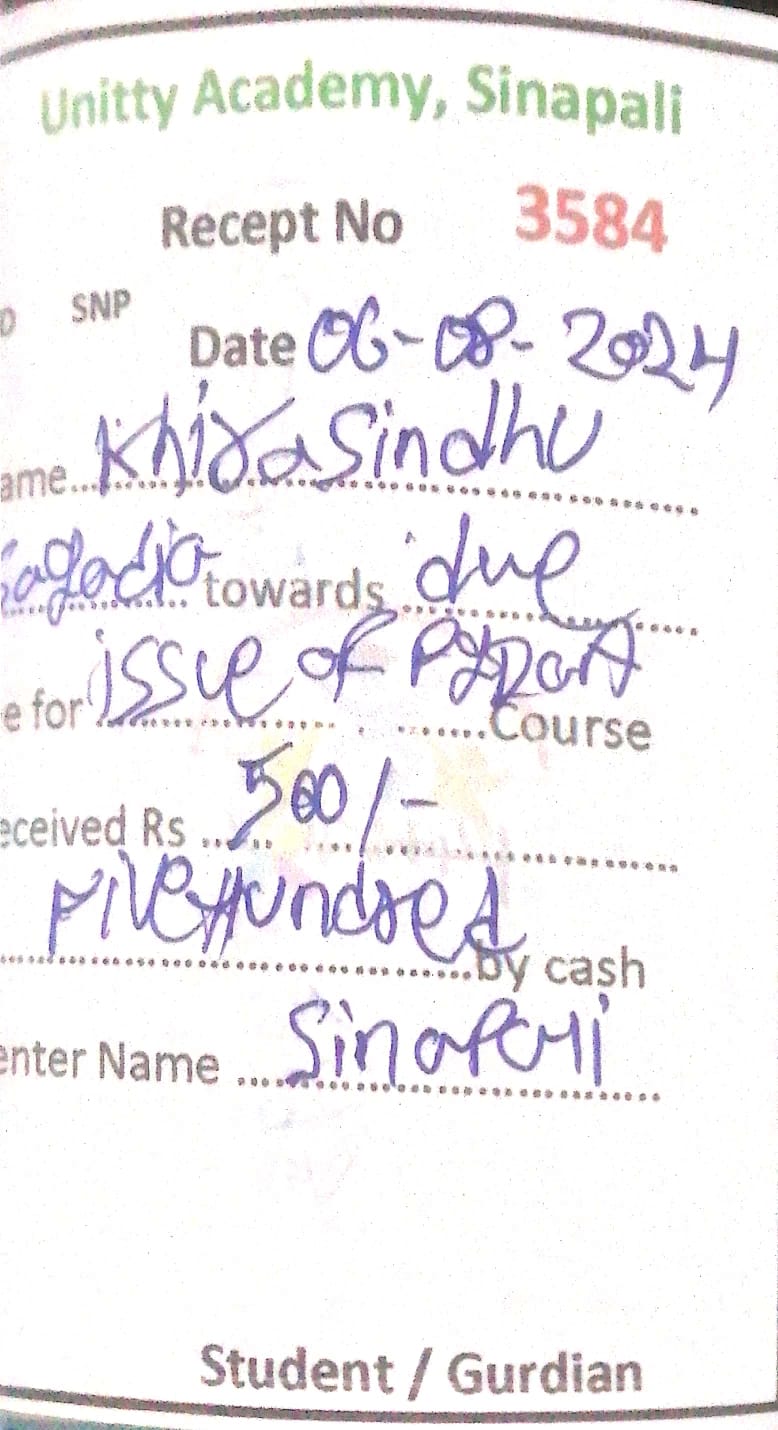 Unitty Academy, Sinapali
Recept No 3584
SNP
Date 06-08-2024
ame... KhiraSindhu
Sagadia towards due
e for issue of Course
eceived Rs 500/-
Five Hundred by cash
enter Name Sinapali
Student / Gurdian